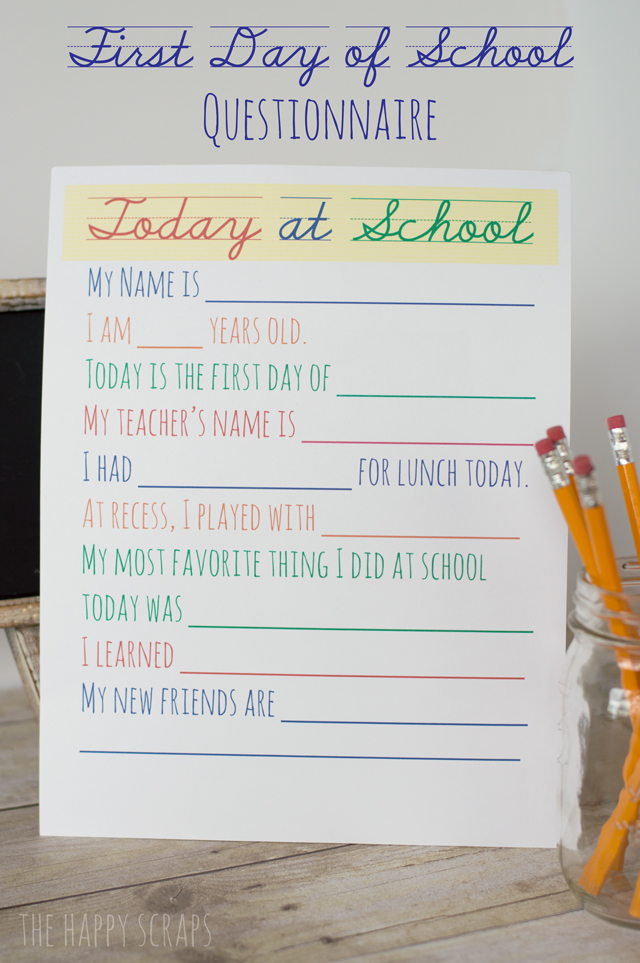 First Day of School
Questionnaire
Today at School
My Name is ____________________
I am _____ years old.
Today is the first day of ____________
My teacher's name is ______________
I had _____________ for lunch today.
At recess, I played with ____________
My most favorite thing I did at school
today was _____________________
I learned _____________________
My new friends are _______________
___________________________
The Happy Scraps